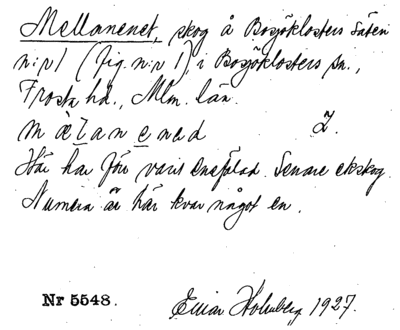 Mellanenet, skog å Bosjöklosters Säteri
n:r 1 (fig. n:r 1), i Bosjöklosters sn.,
Frosta hd., Mlm. län.
mèlanened 2.
Här har förr varit enefälad. Senare ekskog.
Numera är här kvar något en.
Nr 5548. Einar Holmberg 1927.